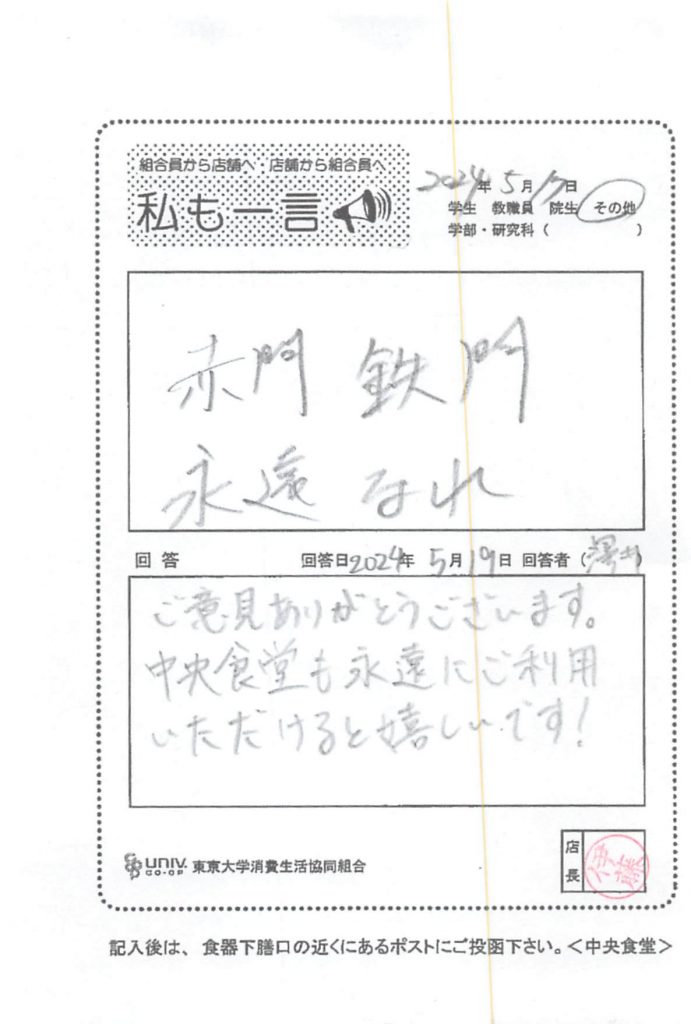 組合員から店舗へ・店舗から組合員へ
私も一言
2024年 5月 17日
学生 教職員 院生 その他
学部・研究科 ( )
赤門 鉄門
永遠 なれ
回答 回答日2024年 5月19日 回答者 (澤井)
ご意見ありがとうございます。
中央食堂も永遠にご利用
いただけると嬉しいです!
UNIV. CO-OP 東京大学消費生活協同組合
店長
記入後は、食器下膳口の近くにあるポストにご投函下さい。＜中央食堂＞